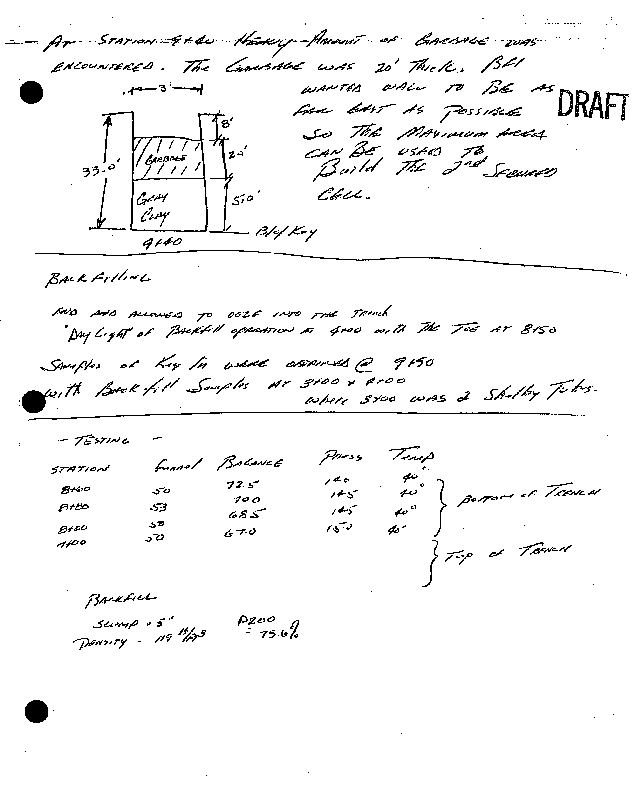 At Station 9+40 Heavy Amount of Garbage was
encountered. The Garbage was 20' thick. BFI
wanted wall to be as
far East as possible
DRAFT
so the maximum area
can be used to
Build the 2nd Sewered
Cell.
3'
8'
33.0'
Garbage
20'
Gray
Clay
5.0'
B/of Key
9+40
Backfilling
and allowed to ooze into the trench
"Day Light" of Backfill operation at 9+00 with the toe at 8+50
Samples of Key In were obtained @ 9+50
with Backfill Samples at 3+00 +
where 3+00 was 2 Shelby Tubes.
- Testing -
Station Funnel Balance Press Temp
8+60 50 72.5 140 40°
8+80 53 70.0 145 40°
68.5 145 40°
8+80 50 67.0 150 40°
9+00 50
Bottom of Trench
Top of Trench
Backfill
Slump = 5"
P200
Density - 119 #/ft3
= 75.6%